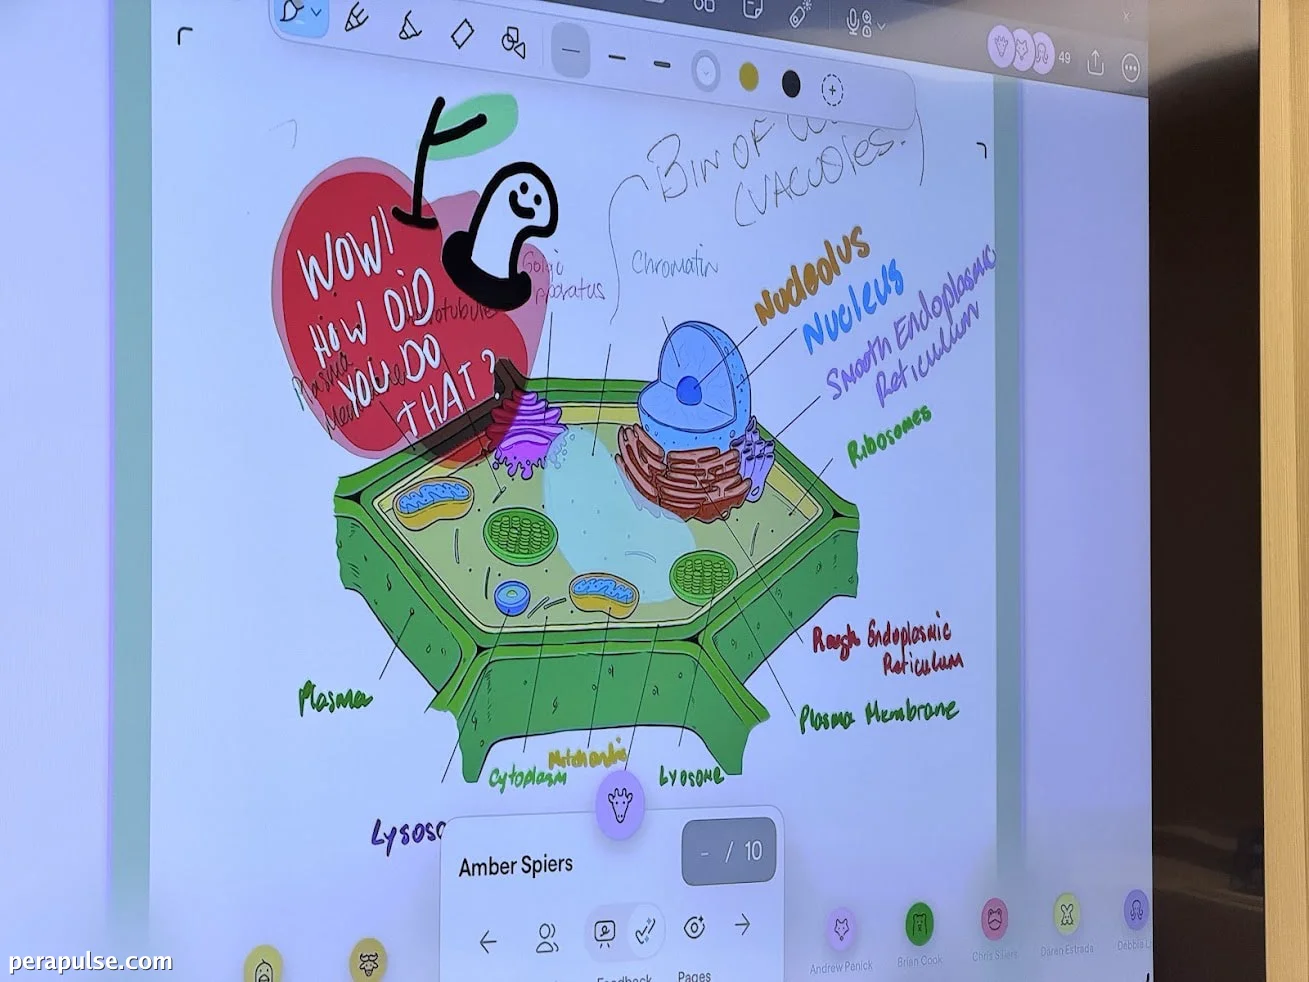 49
BIN OF
(VACUOLES.
WOW!
HOW DID
YOU DO
THAT?
Golgi
Apparatus
Chromatin
Nucleolus
Nucleus
Smooth Endoplasmic
Reticulum
Ribosomes
Plasma
Rough Endoplasmic
Reticulum
Plasma Membrane
Plasma
Cytoplasm
Lysoso
Amber Spiers
- / 10
Feedback
Pages
Andrew Penick
Brian Cook
Chris Sillers
Daren Estrada
Debbie L
perapulse.com